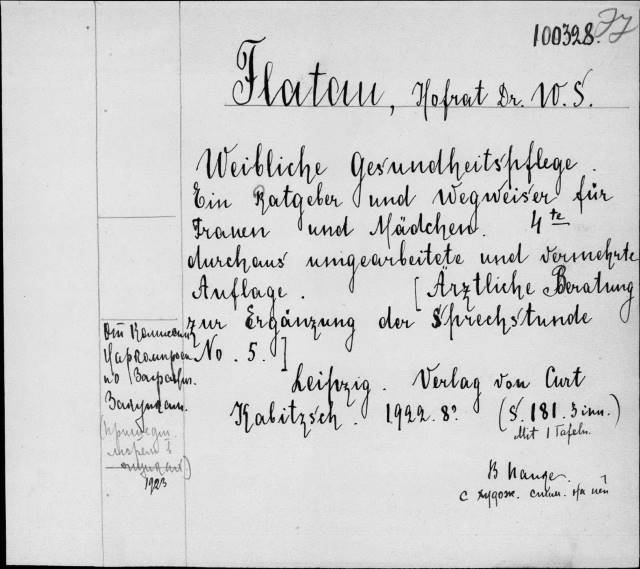 100328.
Flatau, Hofrat Dr. W. S.
Weibliche Gesundheitspflege.
Ein Ratgeber und Wegweiser für
Frauen und Mädchen. 4te
durchaus umgearbeitete und vermehrte
Auflage. [Ärztliche Beratung
zur Ergänzung der Sprechstunde
No. 5.]
Leipzig. Verlag von Curt
Kabitzsch. 1922. 8º. (S. 181. 3 инн.)
Mit 1 Tafeln.
От Комиссии
Наркомпроса
по Загранич.
Закупкам.
1923
В папке
с худож.